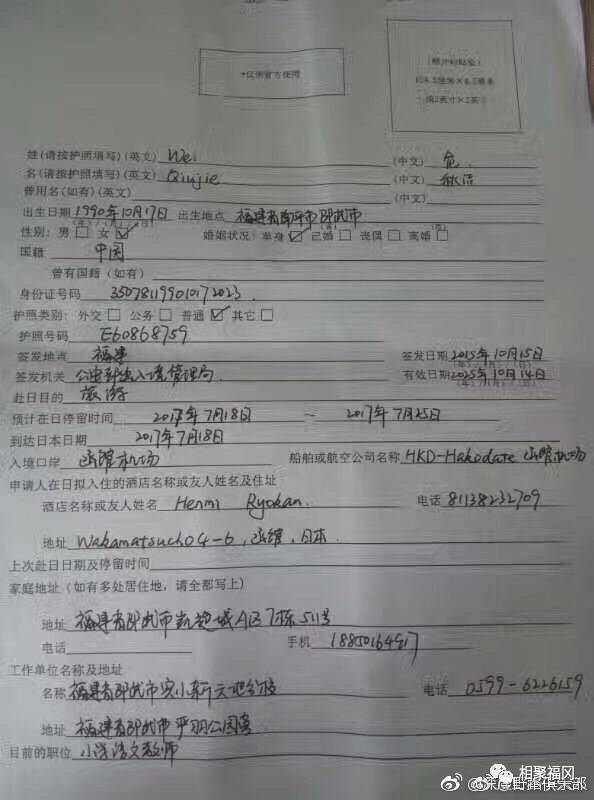 *仅供官方使用
(照片粘贴处)
姓(请按护照填写)(英文) Wei (中文) 危
名(请按护照填写)(英文) Qiujie (中文) 秋洁
曾用名(如有)(英文) (中文)
出生日期 1990年10月17日 出生地点 福建省南平市邵武市
性别: 男□ 女☑ 婚姻状况: 单身☑ 已婚□ 丧偶□ 离婚□
国籍 中国
曾有国籍 (如有)
身份证号码 350781199010172023
护照类别: 外交□ 公务□ 普通☑ 其它□
护照号码 E60868759
签发地点 福建 签发日期 2015年10月15日
签发机关 公安部出入境管理局 有效日期 2025年10月14日
赴日目的 旅游
预计在日停留时间 2017年7月18日 ~ 2017年7月25日
到达日本日期 2017年7月18日
入境口岸 函館机场 船舶或航空公司名称 HKD-Hakodate 函館机场
申请人在日拟入住的酒店名称或友人姓名及住址
酒店名称或友人姓名 Henmi Ryokan. 电话 81138232709
地址 Wakamatsucho 4-6, 函館, 日本
上次赴日日期及停留时间
家庭地址 (如有多处居住地, 请全部写上)
地址 福建省邵武市凯旋城A区7栋511号
电话 手机 18850164917
工作单位名称及地址
名称 福建省邵武市实小新天地分校 电话 0599-6226159
地址 福建省邵武市严羽公园旁
目前的职位 小学语文教师
相聚福冈
深度野路俱乐部